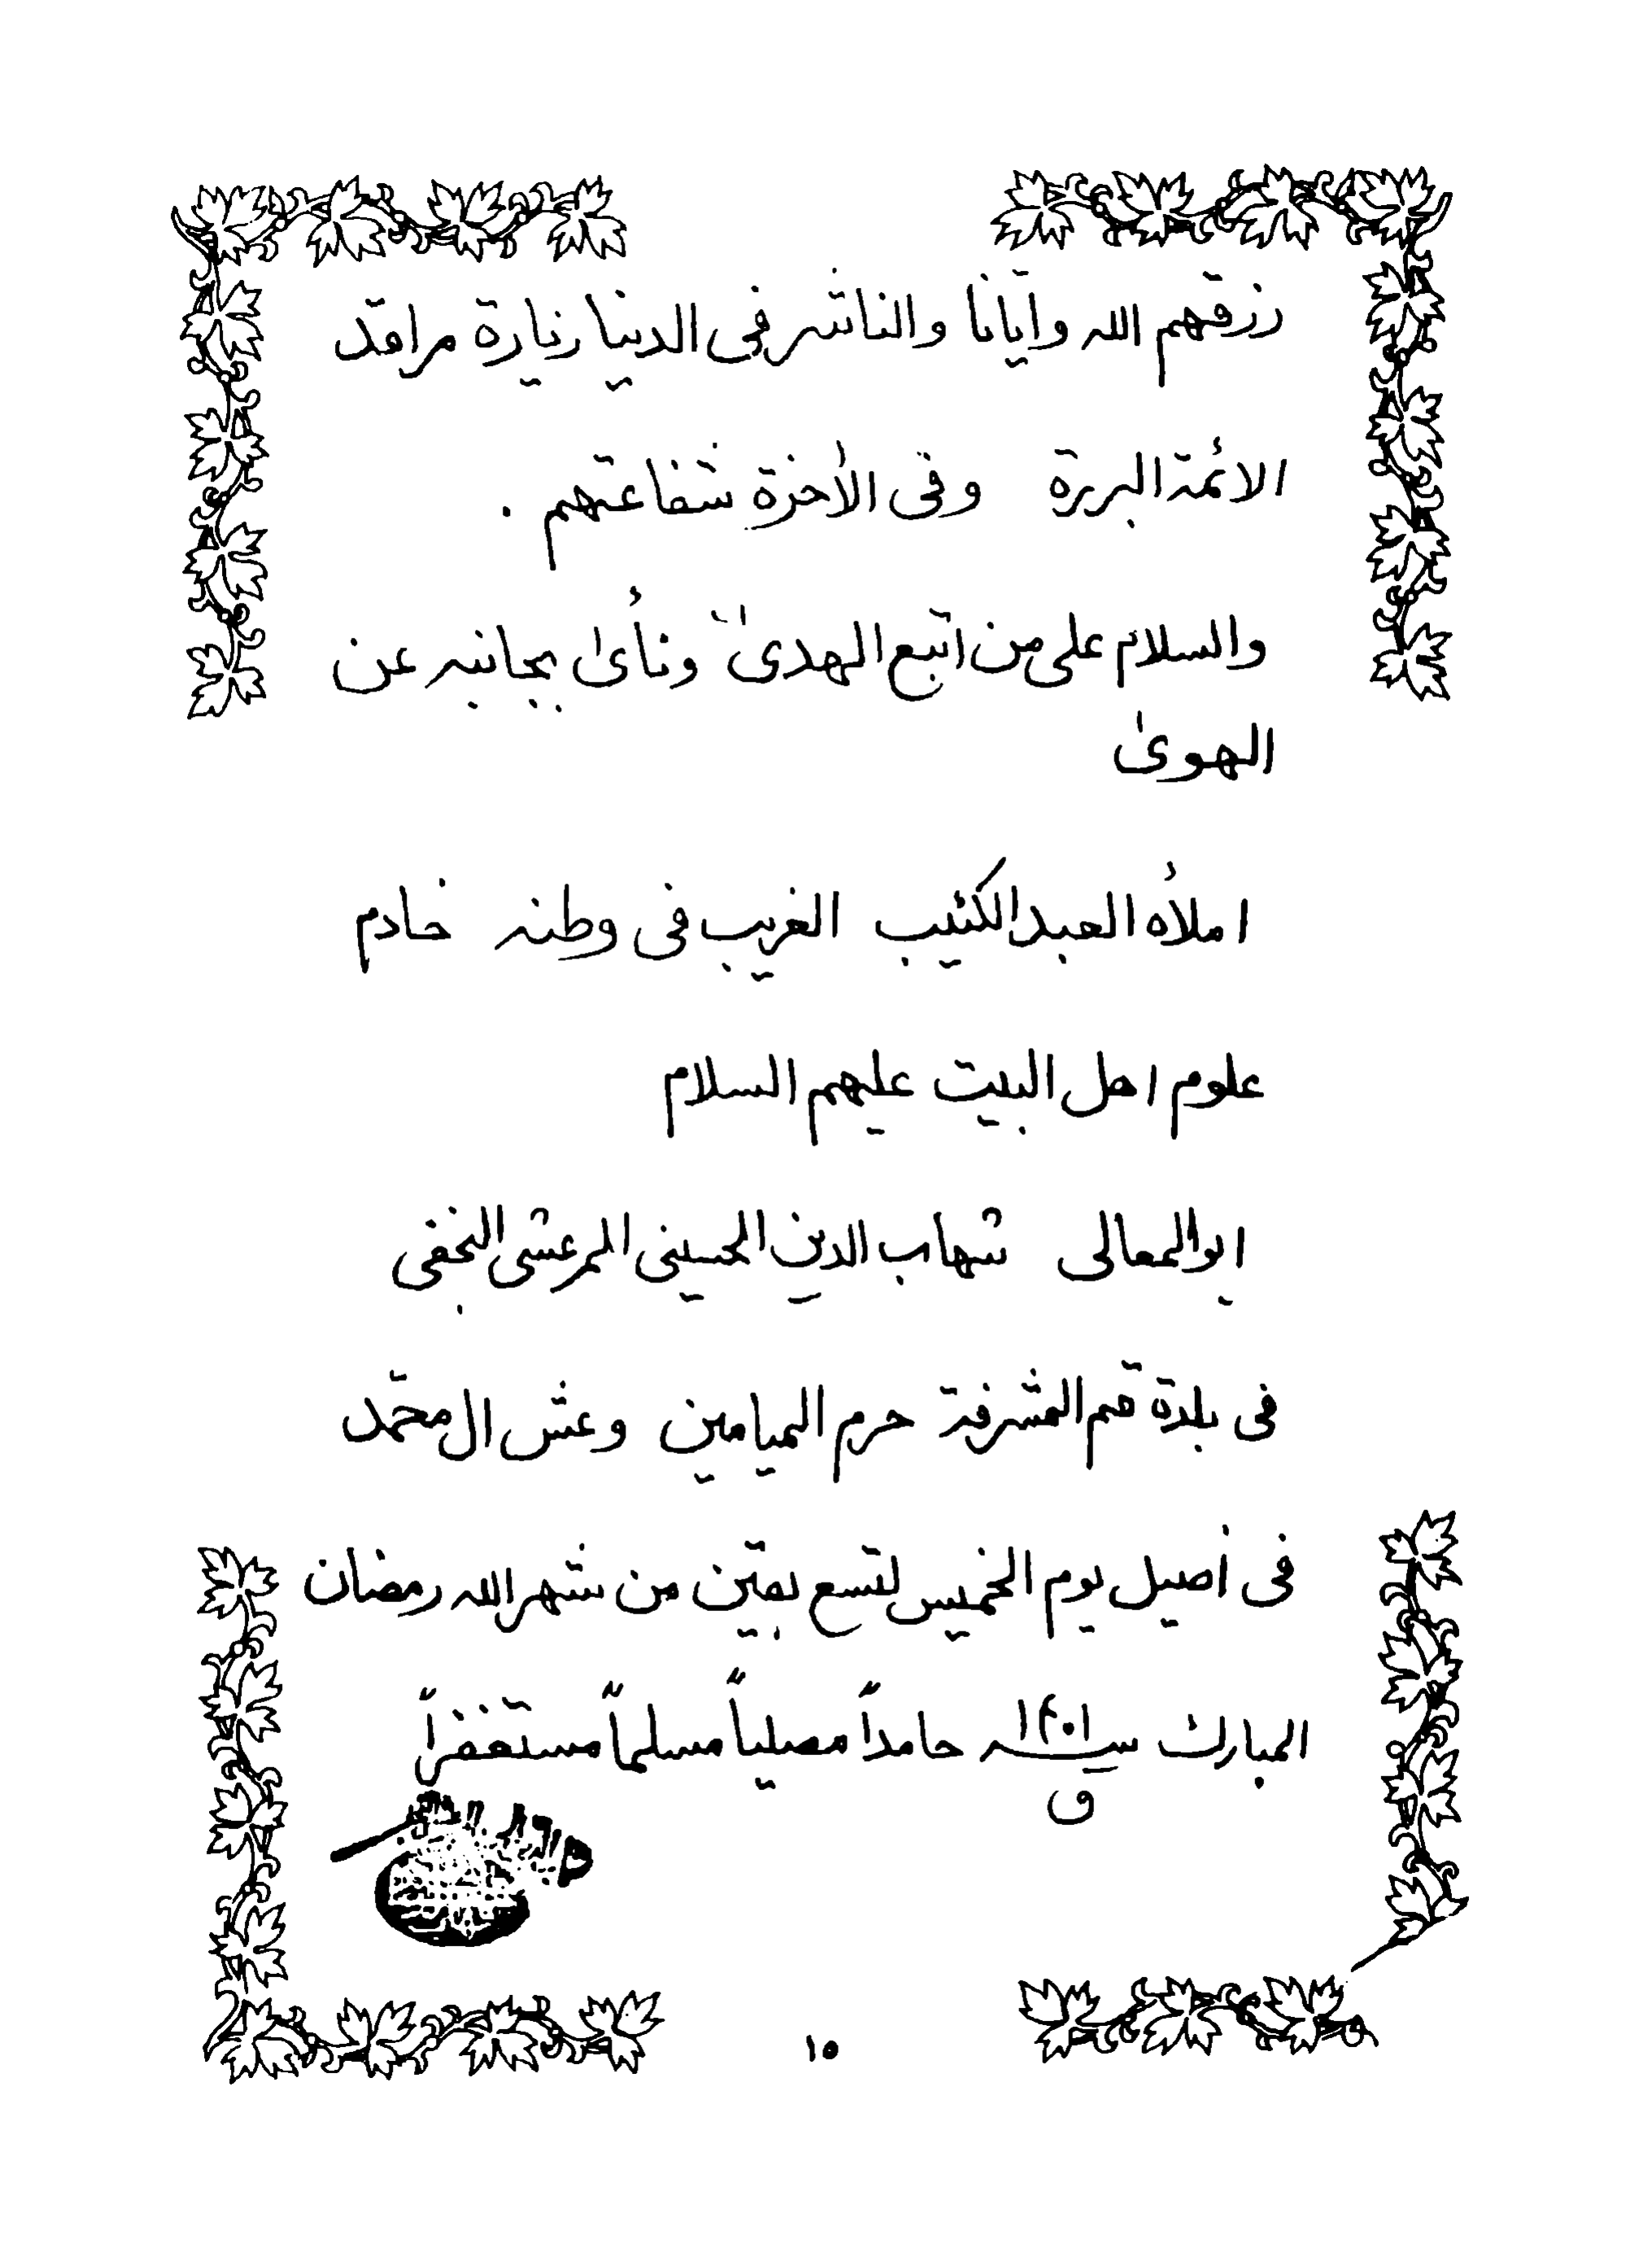 رزقهم الله وايّانا والناشر فى الدنيا زيارة مراقد
الائمة البررة وفى الأخرة شفاعتهم .
والسلام على من اتبع الهدىٰ ونأىٰ بجانبه عن
الهوىٰ
املأه العبد الكئيب الغريب فى وطنه خادم
علوم اهل البيت عليهم السلام
ابوالمعالى شهاب الدين الحسينى المرعشى النجفى
فى بلدة قم المشرفة حرم الميامين وعش ال محمّد
فى أصيل يوم الخميس لتسع بقين من شهر الله رمضان
المبارك سنه ١٤٠١ ق حامداً مصلياً مسلماً مستغفراً
١٥